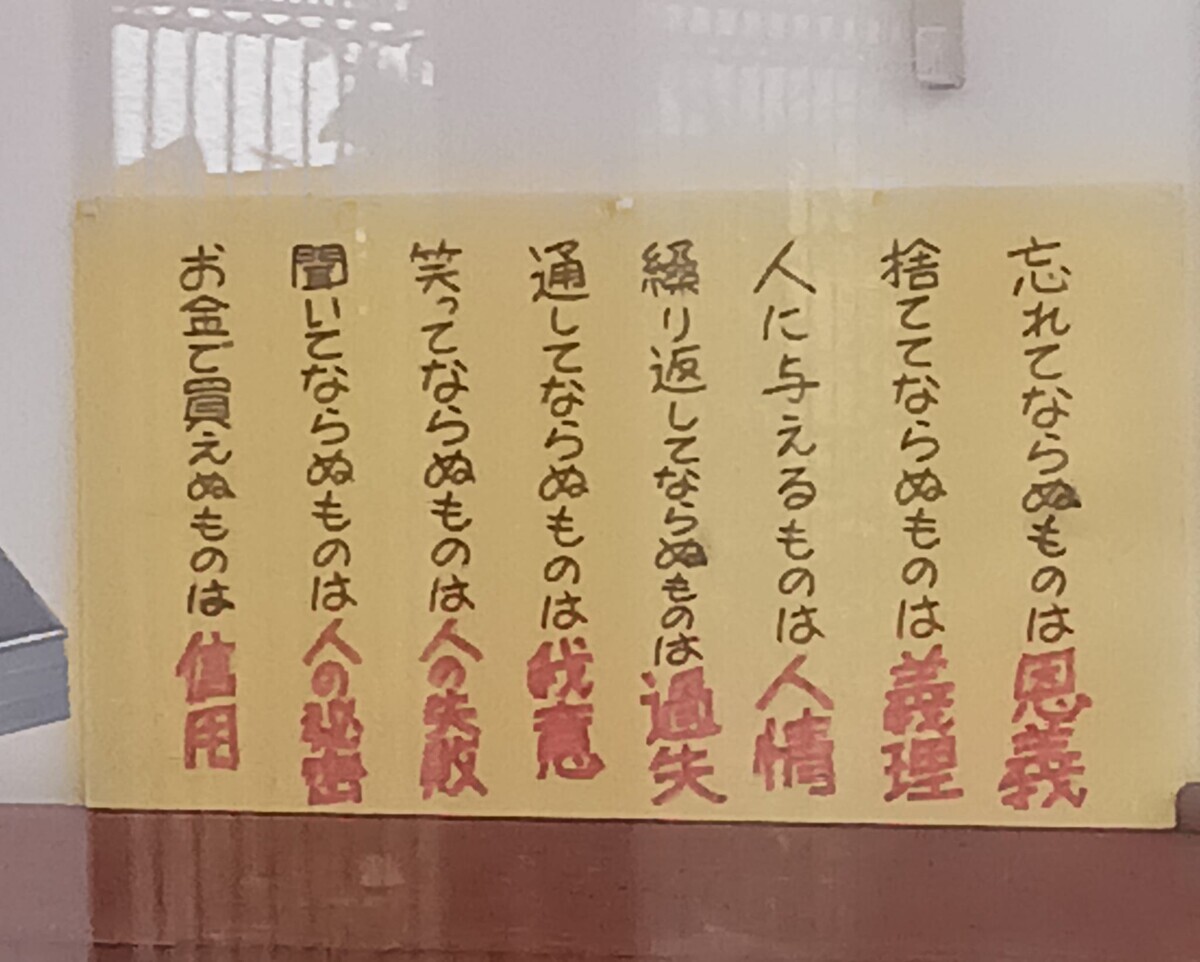 忘れてならぬものは恩義
捨ててならぬものは義理
人に与えるものは人情
繰り返してならぬものは過失
通してならぬものは我意
笑ってならぬものは人の失敗
聞いてならぬものは人の秘密
お金で買えぬものは信用